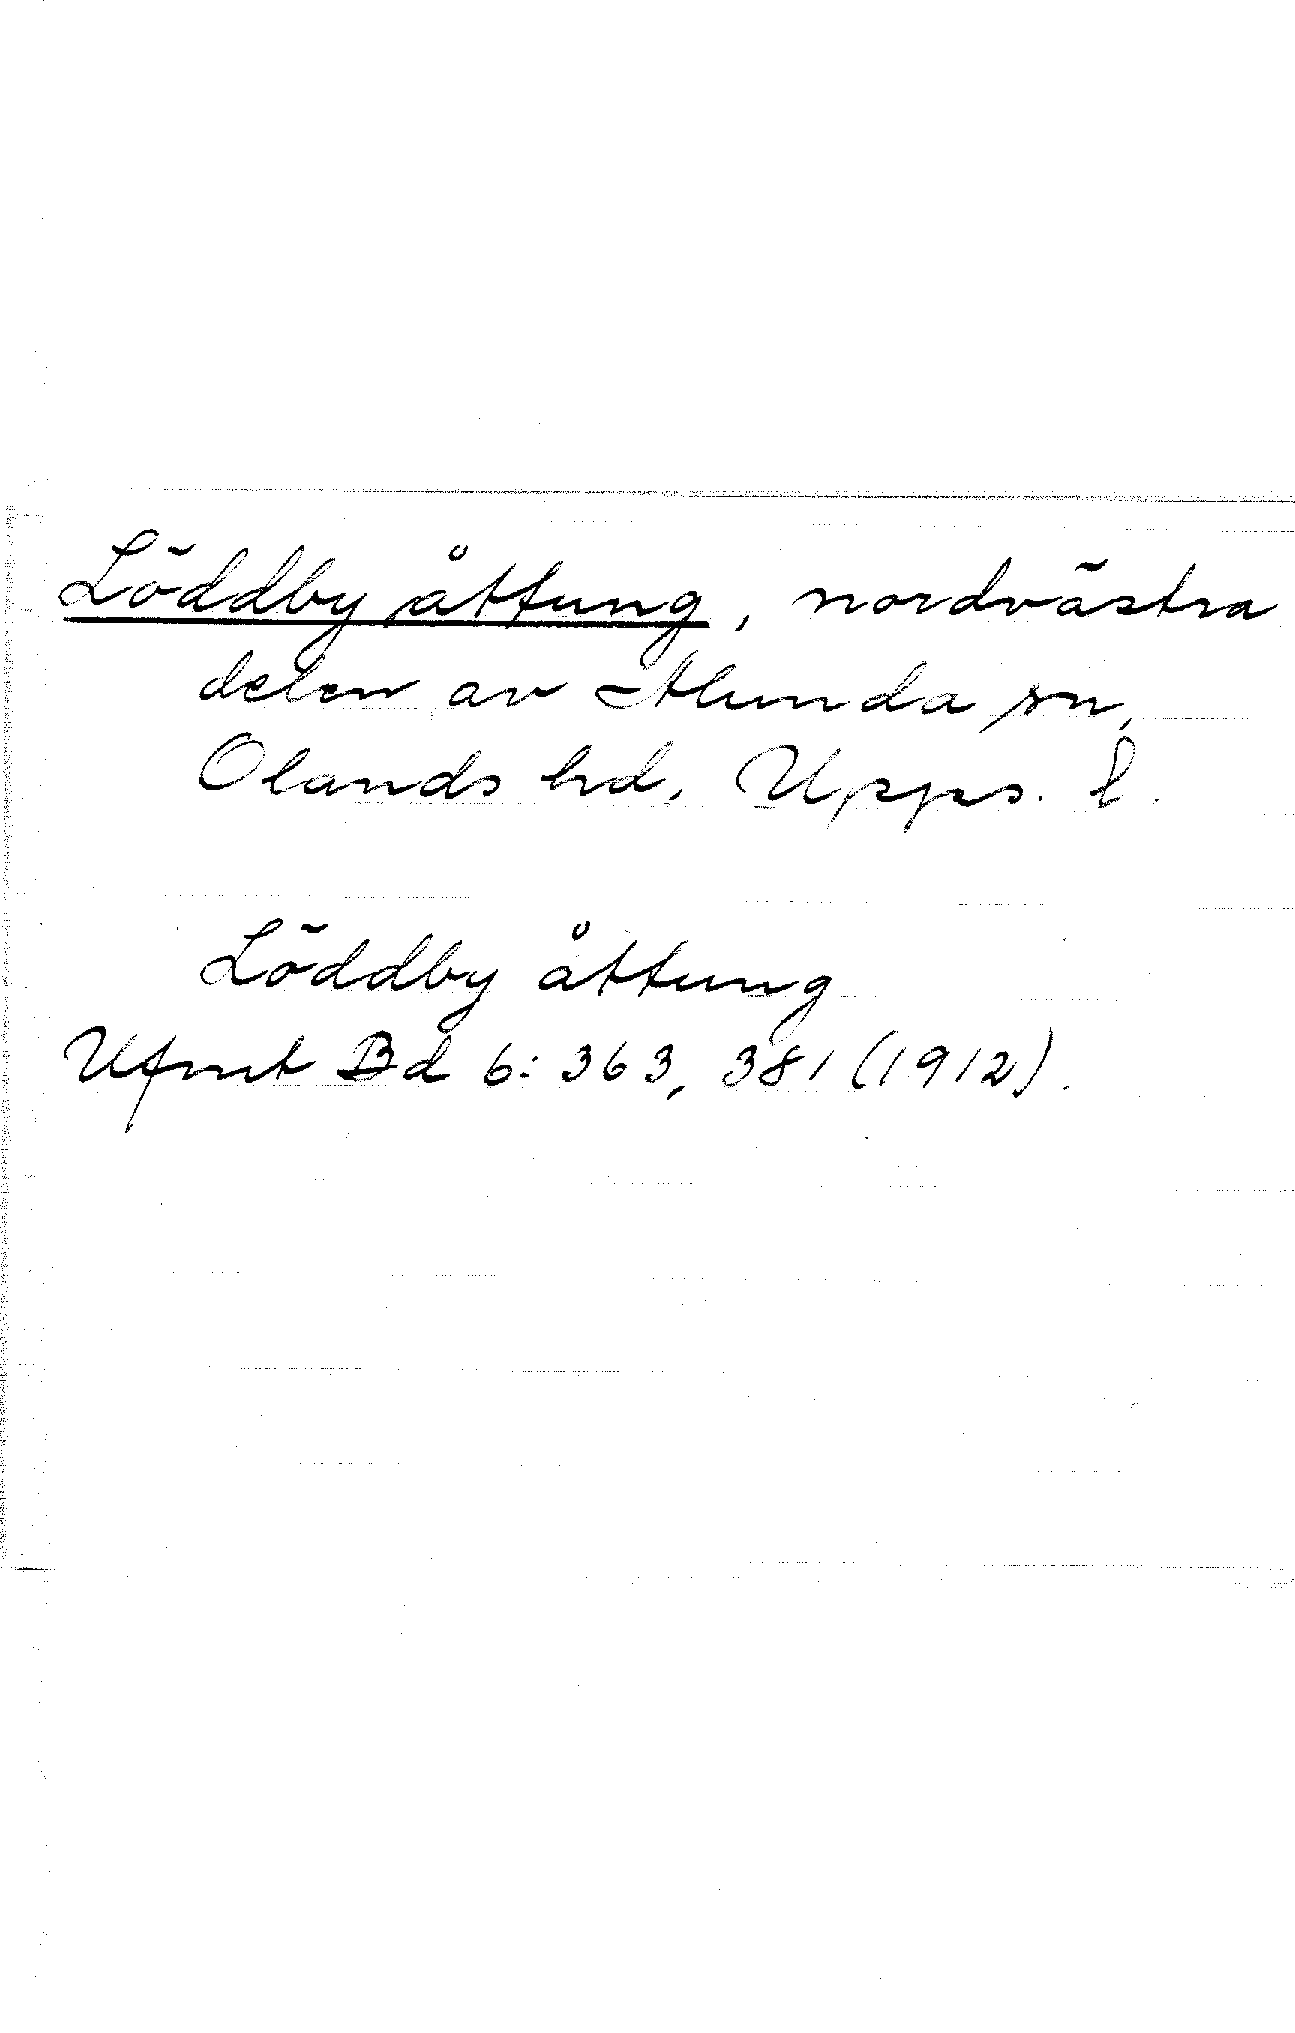 Löddby åttung, nordvästra
delen av Alunda sn,
Olands hd, Upps. l.
Löddby åttung
Ufmt Bd 6: 363, 381 (1912).